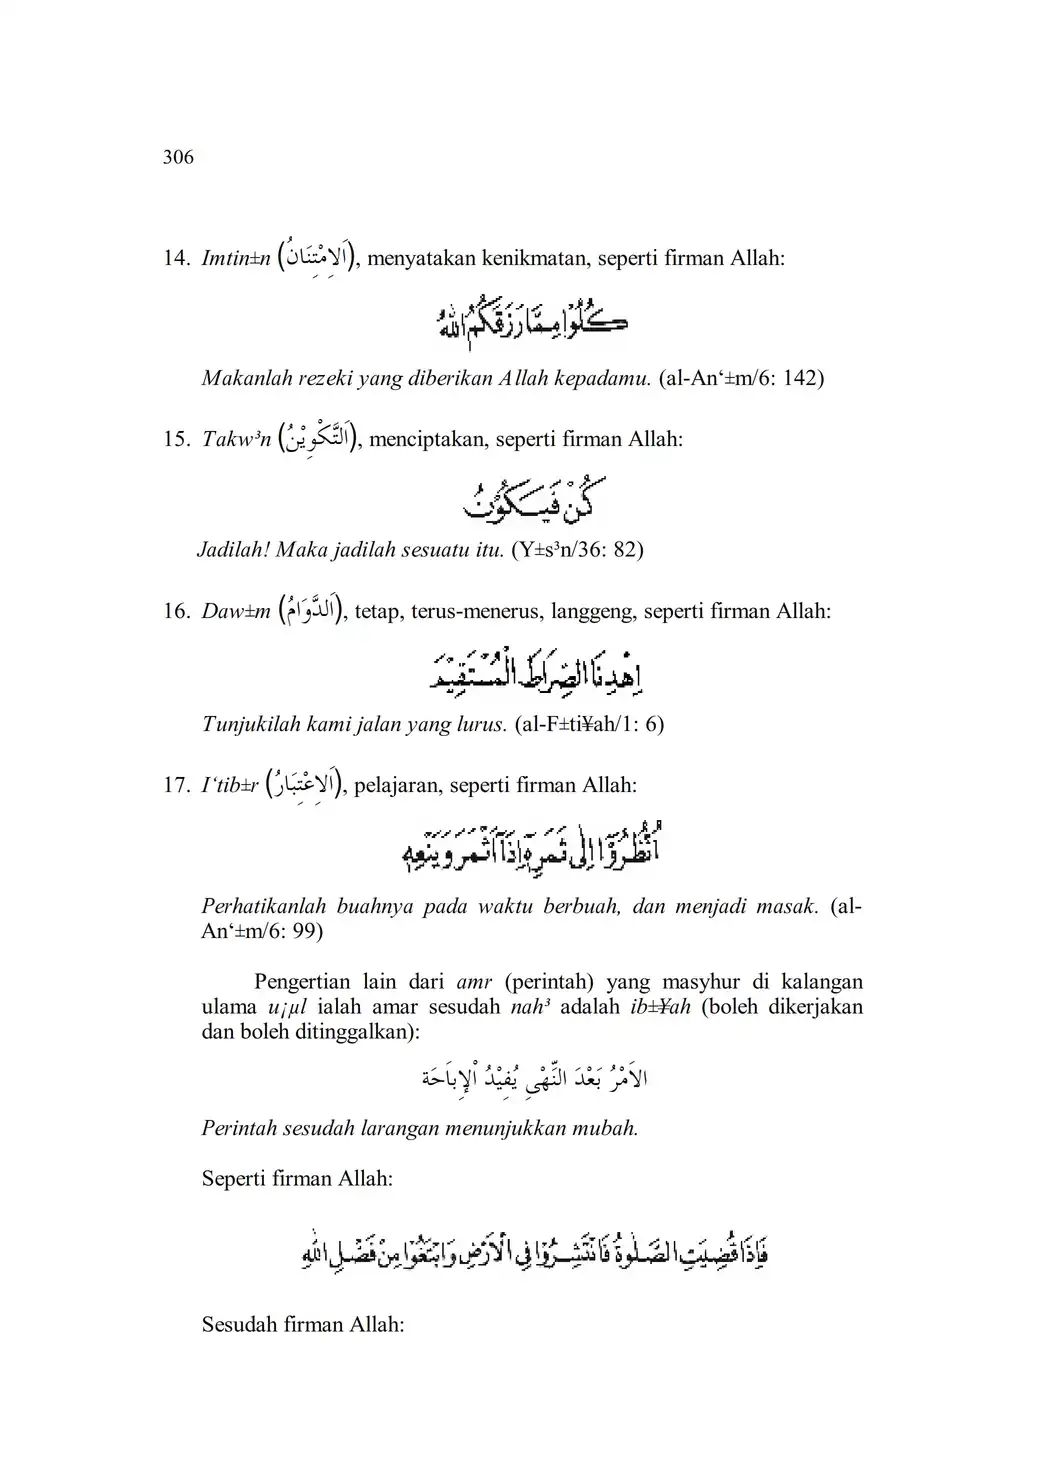 306
14. Imtin±n (اَلاِمْتِنَانُ), menyatakan kenikmatan, seperti firman Allah:
كُلُوْا مِمَّا رَزَقَكُمُ اللّٰهُ
Makanlah rezeki yang diberikan Allah kepadamu. (al-An‘±m/6: 142)
15. Takw³n (اَلتَّكْوِيْنُ), menciptakan, seperti firman Allah:
كُنْ فَيَكُوْنُ
Jadilah! Maka jadilah sesuatu itu. (Y±s³n/36: 82)
16. Daw±m (اَلدَّوَامُ), tetap, terus-menerus, langgeng, seperti firman Allah:
اِهْدِنَا الصِّرَاطَ الْمُسْتَقِيْمَ
Tunjukilah kami jalan yang lurus. (al-F±ti¥ah/1: 6)
17. I‘tib±r (اَلاِعْتِبَارُ), pelajaran, seperti firman Allah:
اُنْظُرُوْٓا اِلٰى ثَمَرِهٖٓ اِذَآ اَثْمَرَ وَيَنْعِهٖ
Perhatikanlah buahnya pada waktu berbuah, dan menjadi masak. (al-
An‘±m/6: 99)
Pengertian lain dari amr (perintah) yang masyhur di kalangan
ulama u¡µl ialah amar sesudah nah³ adalah ib±¥ah (boleh dikerjakan
dan boleh ditinggalkan):
الاَمْرُ بَعْدَ النَّهْىِ يُفِيْدُ اْلإِبَاَحَة
Perintah sesudah larangan menunjukkan mubah.
Seperti firman Allah:
فَاِذَا قُضِيَتِ الصَّلٰوةُ فَانْتَشِرُوْا فِى الْاَرْضِ وَابْتَغُوْا مِنْ فَضْلِ اللّٰهِ
Sesudah firman Allah: